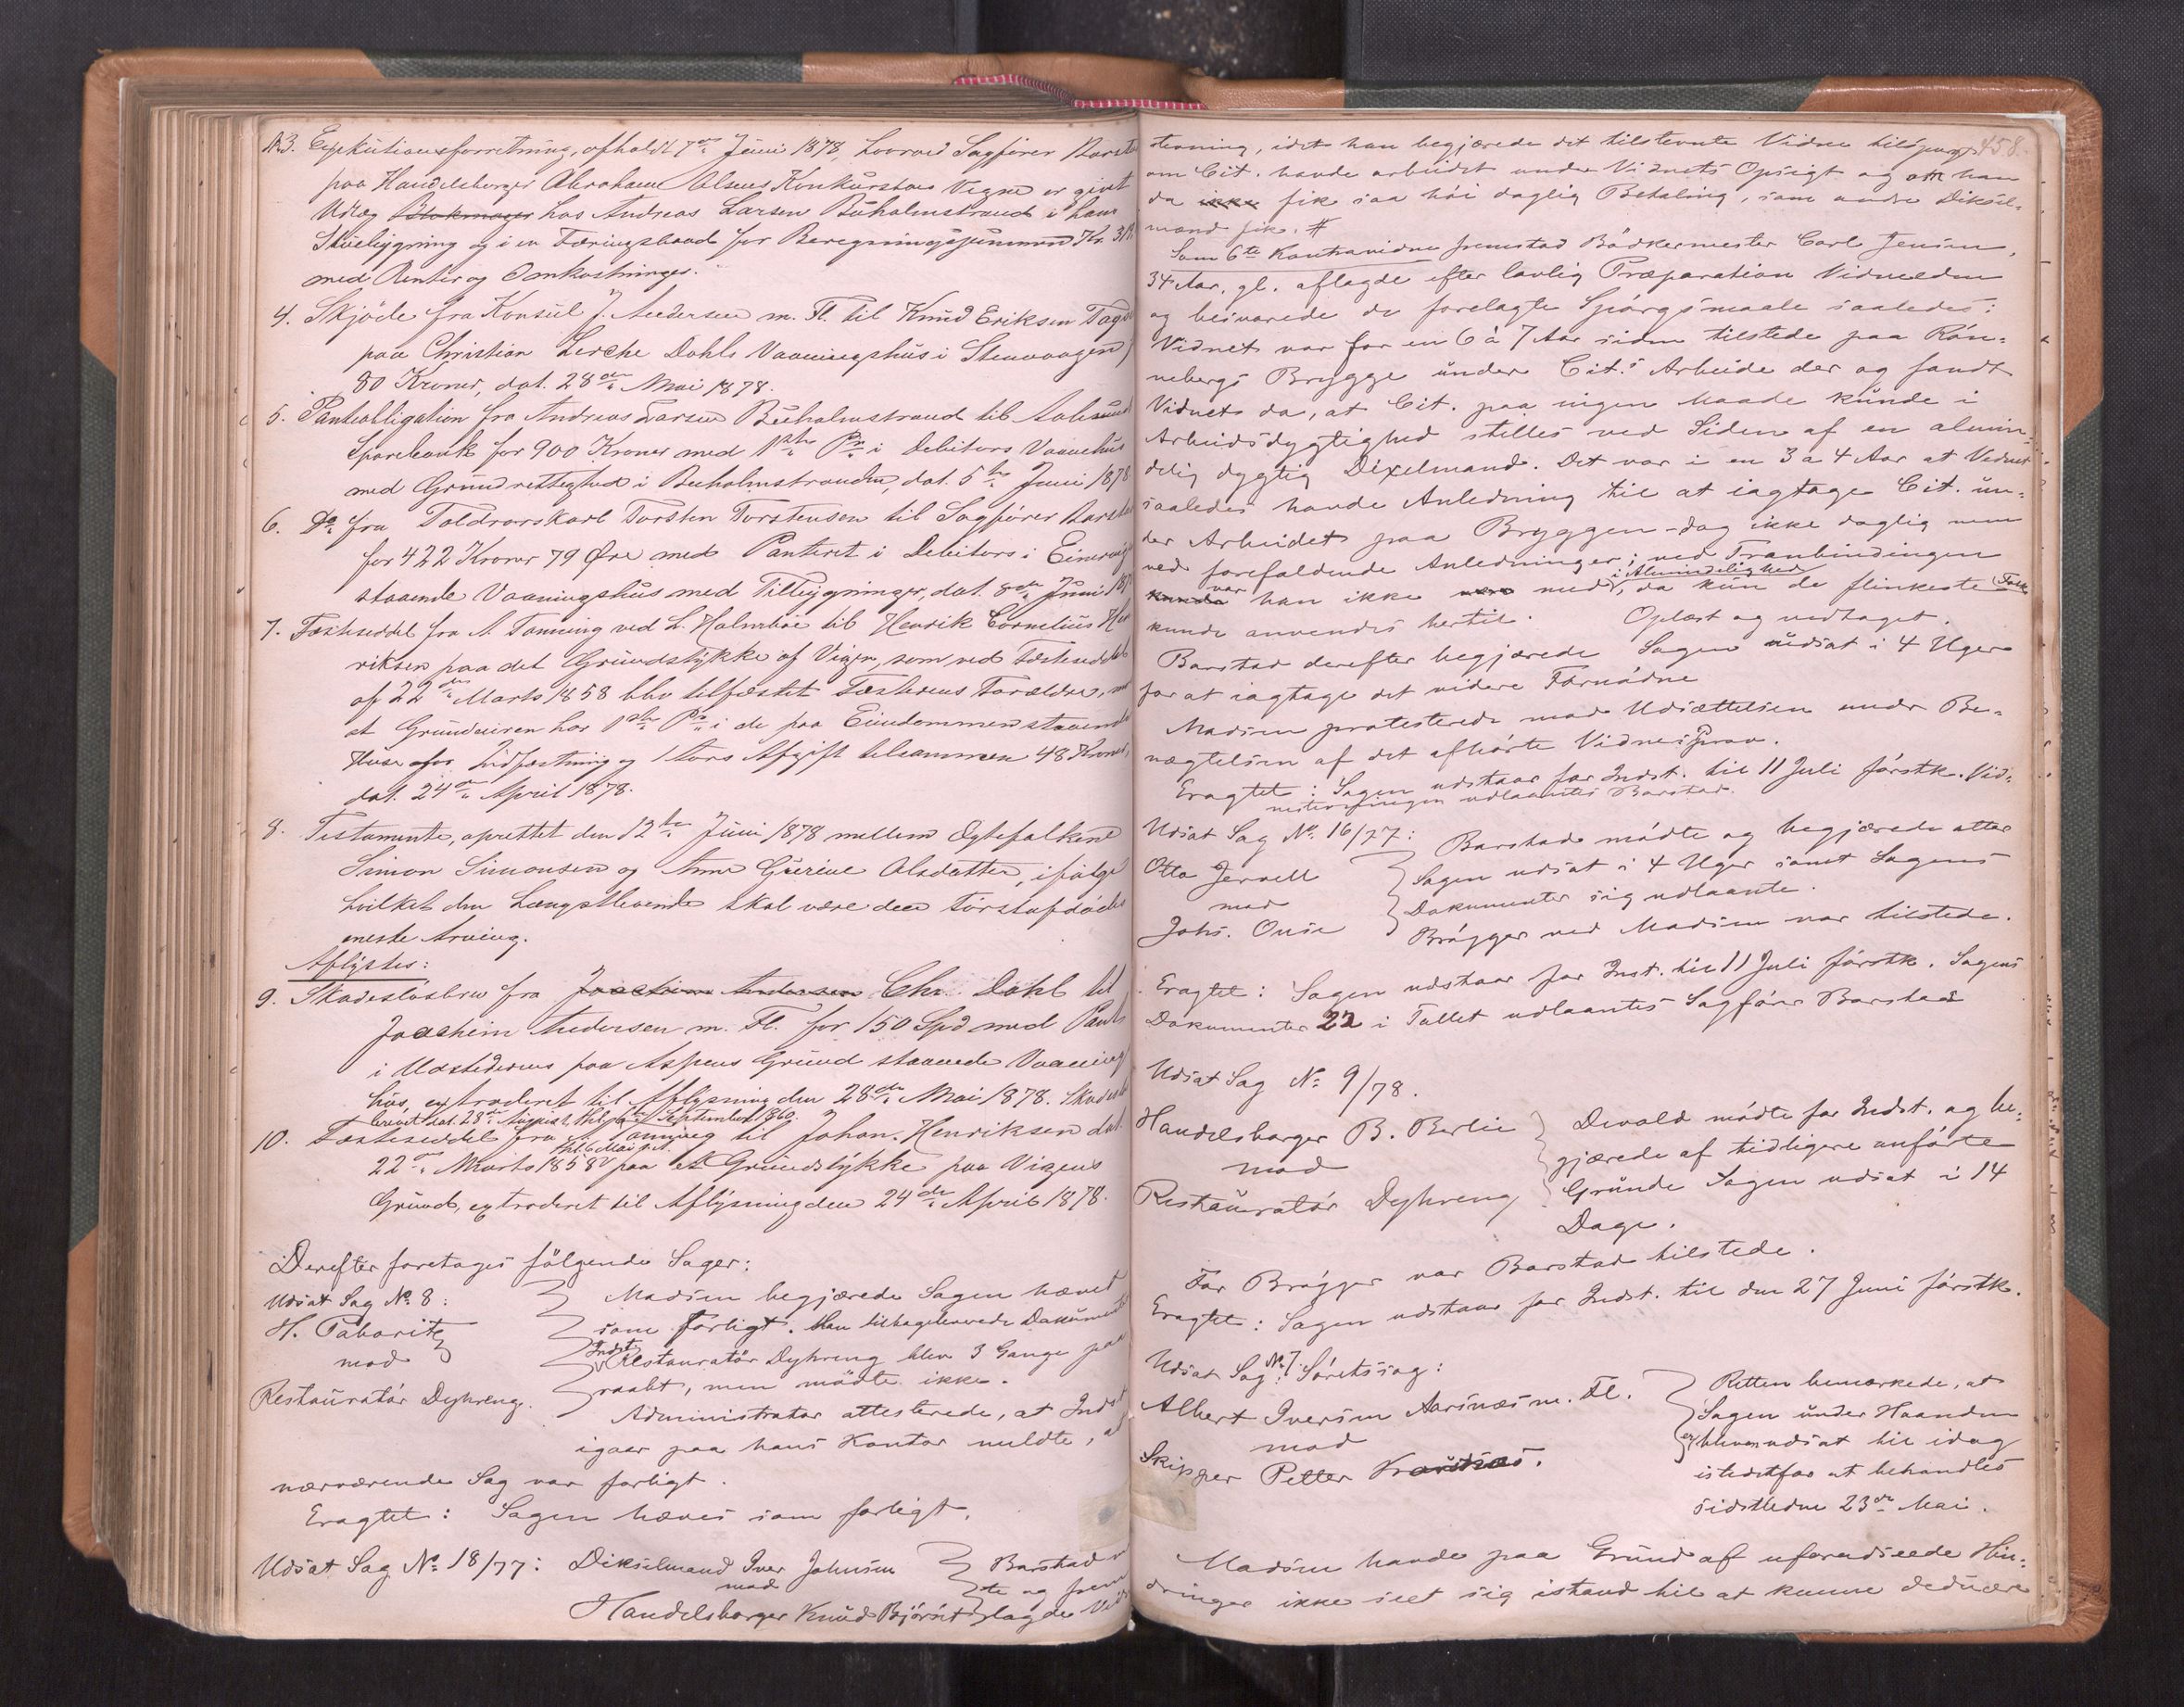 N3. Exekutionsforretning, afholdt 7de Juni 1878, hvorved Sagfører Barstad
paa Handelsborger Abraham Olsens Konkursboes Vegne er givet
Udlæg Blokmager hos Andreas Larsen Buholmstrand i hans
Stuebygning og i en Færingsbaad for Beregningssummen Kr. 31
med Renter og Omkostninger.
4. Skjöde fra Konsul J. Andersen m. Fl. til Knud Eriksen
paa Christian Lerche Dahls Vaaningshus i Stenvaagen
80 Kroner, dat. 28de Mai 1878.
5. Pantobligation fra Andreas Larsen Buholmstrand til Aalesund
Sparebank for 900 Kroner med 1ste Pr. i Debitors Vaanehus
med Grundrettighed i Buholmstranden, dat. 5te Juni 1878
6. Do fra Toldrorskarl Torsten Torstensen til Sagfører Barstad
for 422 Kroner 79 Øre med Panteret i Debitors i
staaende Vaaningshus med Tilbygninger, dat. 8de Juni 187
7. Fæsteseddel fra A. Tanning ved L. Holmboe til Henrik Cornelius Hen
riksen paa det Grundstykke af Vigen, som ved Fæsteseddel
af 22de Marts 1858 blev tilfæstet Fæsterens Forældre,
at Grundeieren har 1ste Pr. i de paa Eiendommen staaende
Huse for Indfæstning og 1 Aars Afgift tilsammen 48 Kroner,
dat. 24de April 1878.
8. Testamente, oprettet den 12te Juni 1878 mellem Ægtefolkene
Simon Simonsen og Anne Guriane Olsdatter, ifølge
hvilket den Længstlevende skal være den Førstafdødes
eneste Arving.
Aflystes:
9. Skadeslosbrev fra Joachim Andersen Chr. Dahl til
Joachim Andersen m. Fl. for 150 Spd med Pant
i Udstederens paa Aspens Grund staaende Vaanings
hus, extraderet til Aflysning den 28de Mai 1878. Skades
brevet dat. 28de August, thl. 6te September 1860.
10. Fæsteseddel fra Tanning til Johan Henriksen dat.
thl. 6 Mai s. A.
22de Marts 1858 paa et Grundstykke paa Vigens
Grund, extraderet til Aflysning den 24de April 1878.
Derefter foretoges fölgende Sager:
Udsat Sag No 8:
H. Taborite
mod
Restauratör Dyhreng.
Madsen begjærede Sagen hævet
som forligt. Han tilbageleverede Dokument
Indst. Restauratör Dyhreng blev 3 Gange paa
raabt, men mödte ikke.
Administrator attesterede, at Indst
igaar paa hans Kontor meldte, at
nærværende Sag var forligt.
Eragtet: Sagen hæves som forligt.
Udsat Sag No 18/77: Dikselmand Iver Johnsen
mod
Handelsborger Knud Björset
Barstad
te og frem
lagde
458.
stevning, idet han begjærede det tilstevnte Vidne tilspurgt
om Cit. havde arbeidet under Vidnets Opsigt og om han
da ikke fik saa höi daglig Betaling, som andre Diksel=
mænd fik. #
Som 6te Kontravidne fremstod Bödkermester Carl Jensen,
34 Aar, gl. aflagde efter lovlig Præparation Vidneeden
og besvarede de forelagte Spörgsmaale saaledes:
Vidnet var for en 6 à 7 Aar siden tilstede paa Rön=
nebergs Brygge under Cit.s Arbeide der og fandt
Vidnet da, at Cit. paa ingen Maade kunde i
Arbeidsdygtighed stilles ved Siden af en almin=
delig dygtig Dixelmand. Det var i en 3 a 4 Aar at Vidnet
saaledes havde Anledning til at iagtage Cit. un=
der Arbeidet paa Bryggen - dog ikke daglig men
ved forefaldende Anledninger; ved Tranbindingen
kunde var han ikke være med, i Almindelighed da kun de flinkeste Folk
kunde anvendes hertil. Oplæst og vedtaget.
Barstad derefter begjærede Sagen udsat i 4 Uger
for at iagtage det videre Fornödne
Madsen protesterede mod Udsættelsen under Be=
nægtelsen af det afhörte Vidnesprov.
Eragtet: Sagen udstaar for Indst. til 11 Juli förstk. Vid=
nestevningen udlaantes Barstad.
Udsat Sag No 16/77:
Otto Jervell
mod
Johs. Ouse
Barstad mödte og begjærede atter
Sagen udsat i 4 Uger samt Sagens
Dokumenter sig udlaante.
Brögger ved Madsen var tilstede.
Eragtet: Sagen udstaar for Inst. til 11 Juli förstk. Sagens
Dokumenter 22 i Tallet udlaantes Sagförer Barstad
Udsat Sag No 9/78.
Handelsborger B. Berlin
mod
Restauratör Dyhreng
Devold mödte for Indst. og be=
gjærede af tidligere anförte
Grunde Sagen udsat i 14
Dage.
For Brögger var Barstad tilstede.
Eragtet: Sagen udstaar for Indst. til den 27 Juni förstk.
Udsat Sag No 7. Söretssag:
Albert Iversen Aarsnæs m. Fl.
mod
Skipper Petter
Retten bemærkede, at
Sagen under Haanden
er bleven udsat til idag
istedetfor at behandles
sidstledne 23de Mai.
Madsen havde paa Grund af uforudseede Hin=
dringer ikke seet sig istand til at kunne deducere